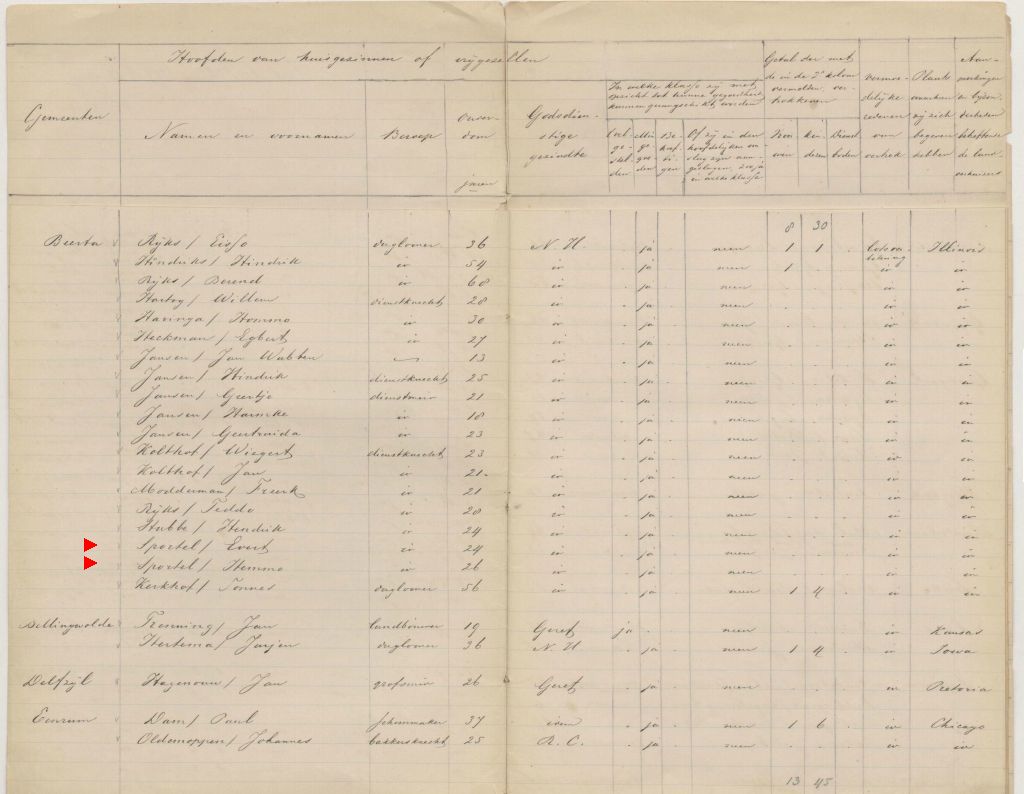 Hoofden van huisgezinnen of vrijgezellen
Gemeenten
Namen en voornamen
Beroep
Ouder-
dom
jaren
Godsdien-
stige
gezindte
In welke klasse zij met
opzicht tot hunne gegoedheid
kunnen gerangschikt worden
Wel-
ge-
stel-
den
Min
ge-
goe-
den
Be-
hoef-
ti-
gen
Of zij in den
hoofdelijken om-
slag zijn aan-
geslagen, zoo ja
in welke klasse
Getal der met
de in de 2e kolom
vermelden, ver-
trokkenen
Vrou-
wen
kin-
deren
Dienst
boden
vermoe-
delijke
redenen
van
vertrek
Plaats
waarheen
zij zich
begeven
hebben
Aan-
merkingen
en bijzon-
derheden
betreffende
de land-
verhuizers
8 30
Beerta Rijks / Eisso daglooner 36 N. H. ja neen 1 1 lotsver-
betering Illinois
Hindriks / Hindrik id 54 id ja neen 1 id id
Rijks / Berend id 60 id ja neen id id
Hartog / Willem dienstknecht 28 id ja neen id id
Havinga / Hommo id 30 id ja neen id id
Heckman / Egbert id 27 id ja neen id id
Jansen / Jan Wubben 13 id ja neen id id
Jansen / Hindrik dienstknecht 25 id ja neen id id
Jansen / Geertje dienstmeid 21 id ja neen id id
Jansen / Harmke id 18 id ja neen id id
Jansen / Geertruida id 23 id ja neen id id
Holthof / Wiegert dienstknecht 23 id ja neen id id
Holthof / Jan id 21 id ja neen id id
Modderman / Freerk id 21 id ja neen id id
Rijks / Feddo id 20 id ja neen id id
Stubbe / Hendrik id 24 id ja neen id id
Sportel / Evert id 24 id ja neen id id
Sportel / Hemmo id 26 id ja neen id id
Kerkhof / Tonnes daglooner 56 id ja neen 1 4 id id
Bellingwolde Frenning / Jan landbouwer 19 Geref ja neen id Kansas
Hertema / Jurjen daglooner 36 N. H. ja neen 1 4 id Iowa
Delfzijl Hagenouw / Jan grofsmid 26 Geref ja neen id Pretoria
Eenrum Dam / Paul schoenmaker 37 idem ja neen 1 6 id Chicago
Oldenoppen / Johannes bakkersknecht 25 R. C. ja neen id id
13 45